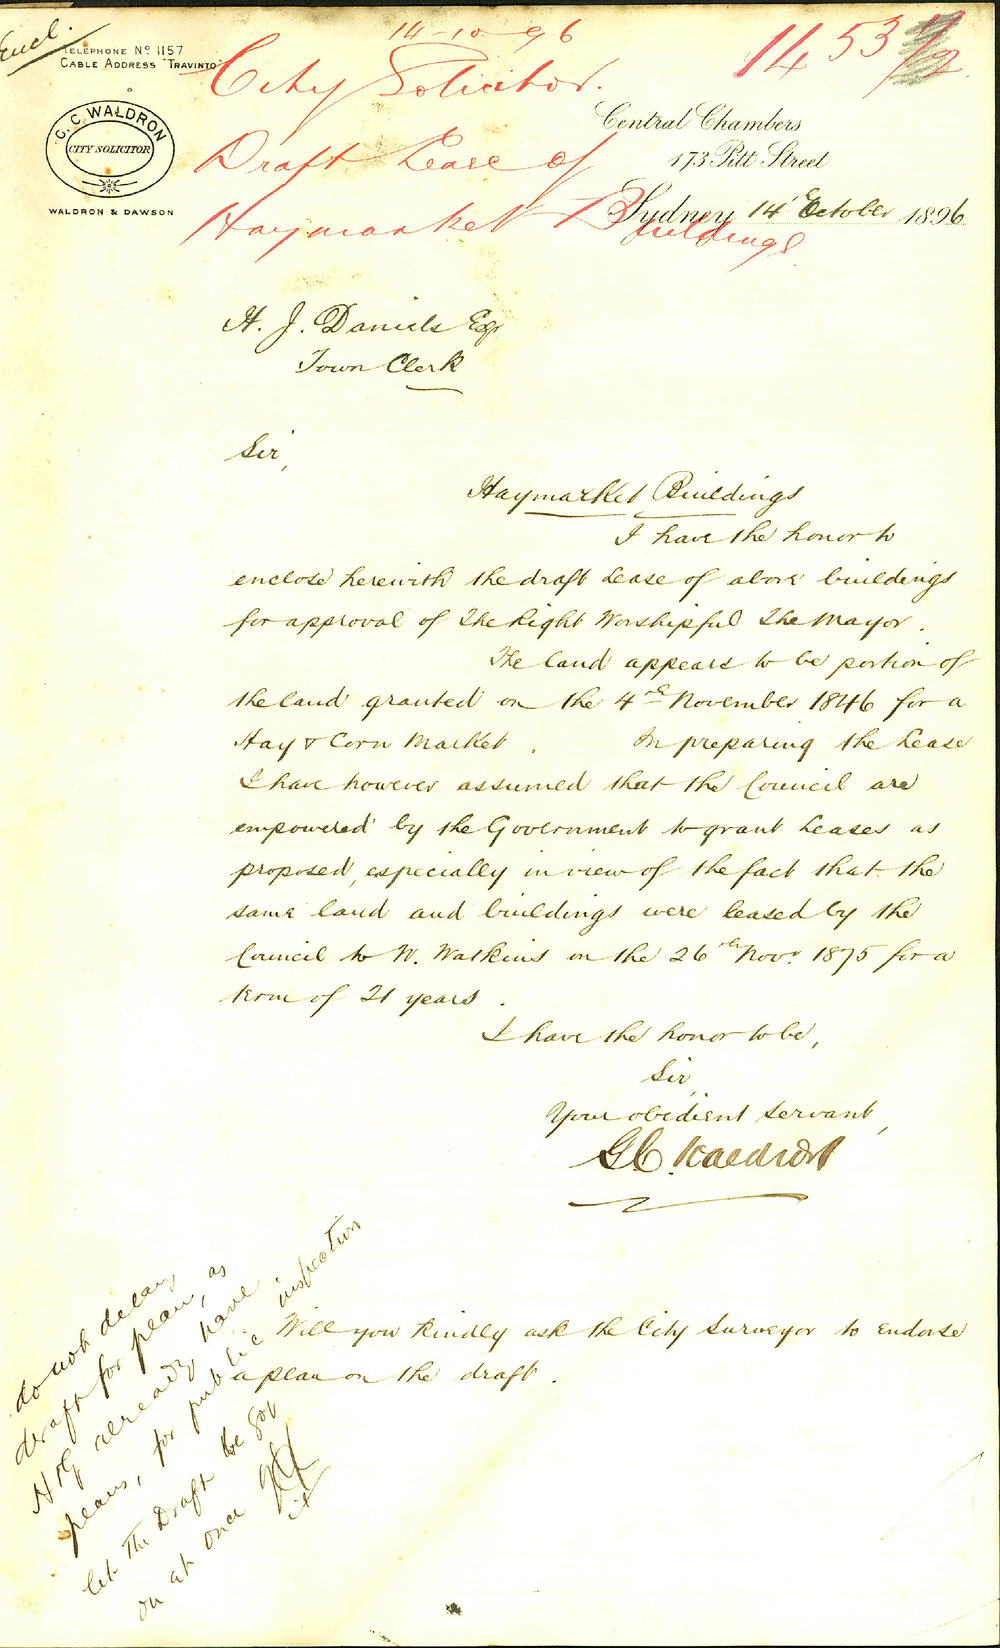 Encl.
TELEPHONE No 1157
CABLE ADDRESS "TRAVINTO"
G. C. WALDRON
CITY SOLICITOR
WALDRON & DAWSON
14-10-96
1453
City Solicitor.
Draft Lease of
Haymarket Buildings
Central Chambers
173 Pitt Street
Sydney 14 October 1896
H. J. Daniels Esqr
Town Clerk
Sir,
Haymarket Buildings
I have the honor to
enclose herewith the draft Lease of above buildings
for approval of The Right Worshipful The Mayor.
The land appears to be portion of
the land granted on the 4th November 1846 for a
Hay & Corn Market. In preparing the Lease
I have however assumed that the Council are
empowered by the Government to grant Leases as
proposed, especially in view of the fact that the
same land and buildings were leased by the
Council to W. Watkins on the 26th Novr. 1875 for a
term of 21 years.
I have the honor to be,
Sir,
Your obedient Servant,
G. C. Waldron
Will you kindly ask the City Surveyor to endorse
a plan on the draft.
do not delay
draft for plan, as
already have
plans, for public inspection
let The Draft be
on at once